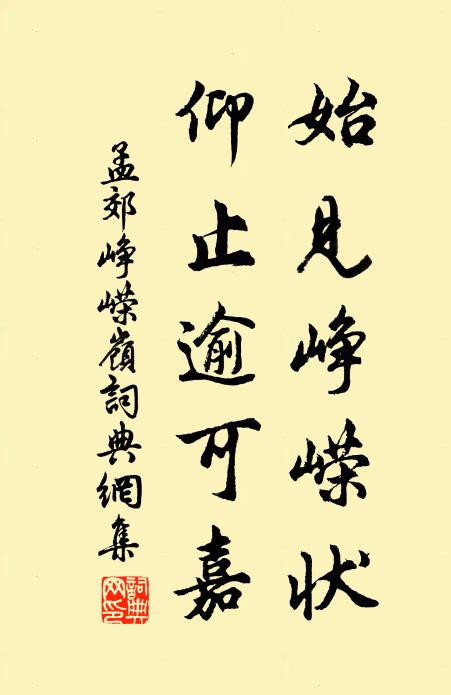 始见峥嵘状
仰止逾可嘉
孟郊峥嵘嶺詞典網集
詞典网印